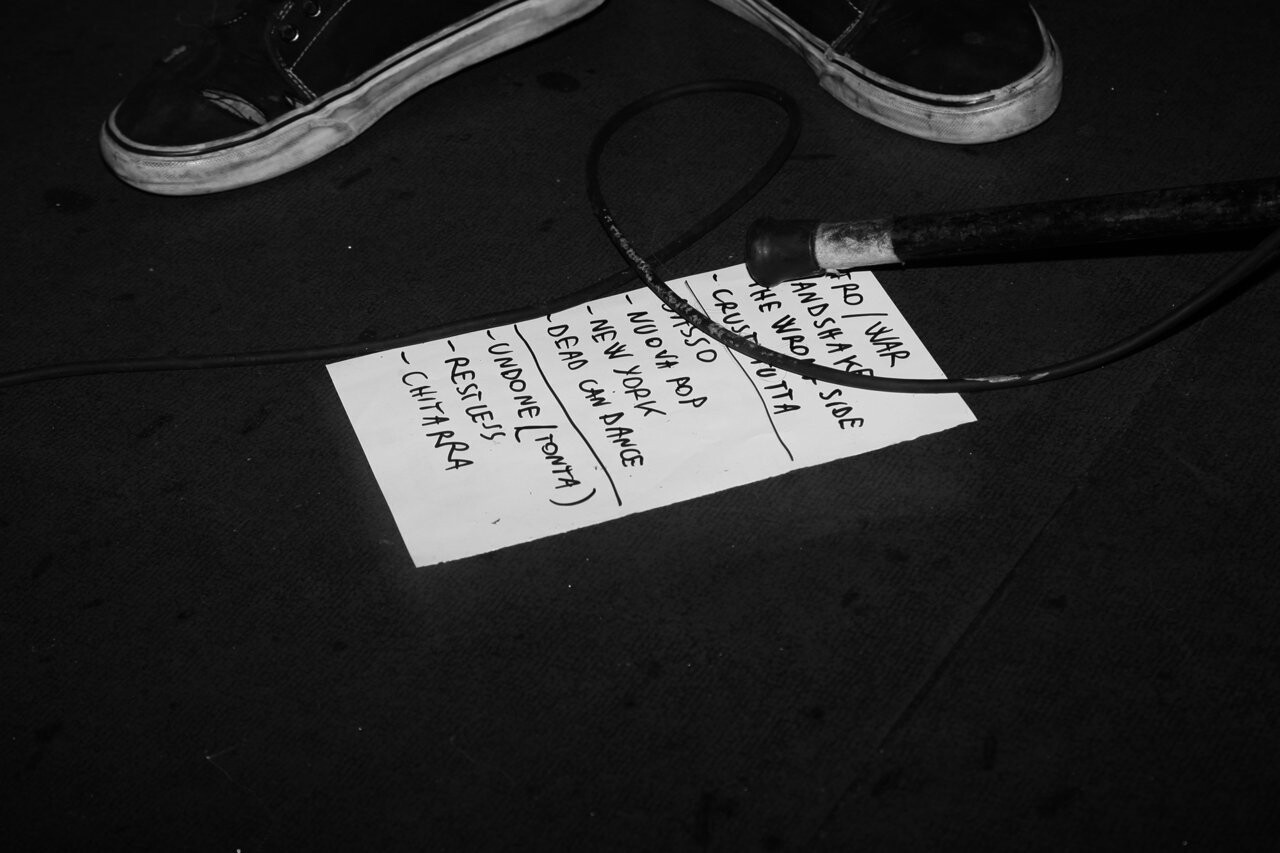 TRO / WAR
ANDSHAKE
THE WRONG SIDE
- CRUST TUTTA
BASSO
- NUOVA POP
- NEW YORK
- DEAD CAN DANCE
- UNDONE / (TONTA)
- RESTLESS
- CHITARRA